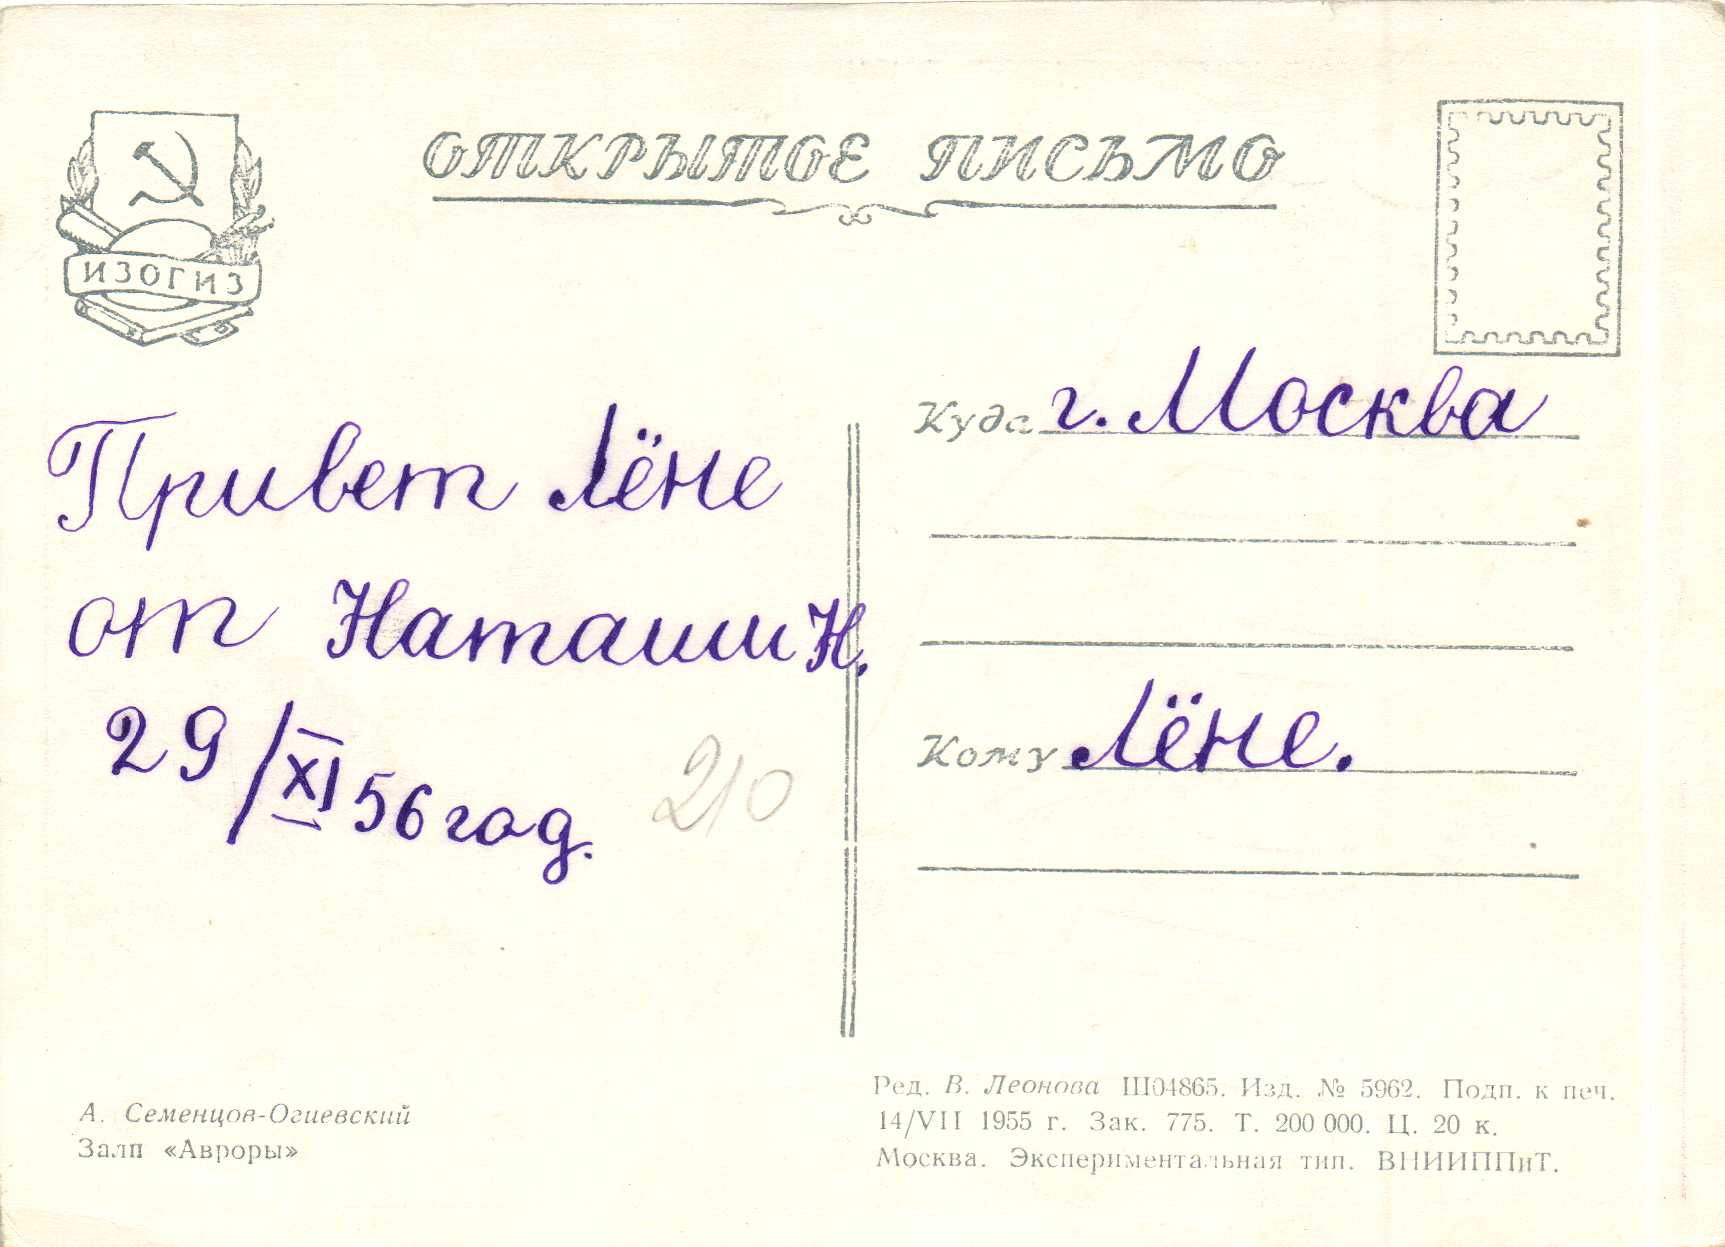 ОТКРЫТОЕ ПИСЬМО
ИЗОГИЗ
Привет Лёне
от Наташи Н.
29/XI 56 год.
210
Куда г. Москва
Кому Лёне.
А. Семенцов-Огиевский
Залп «Авроры»
Ред. В. Леонова Ш04865. Изд. № 5962. Подп. к печ.
14/VII 1955 г. Зак. 775. Т. 200 000. Ц. 20 к.
Москва. Экспериментальная тип. ВНИИППиТ.